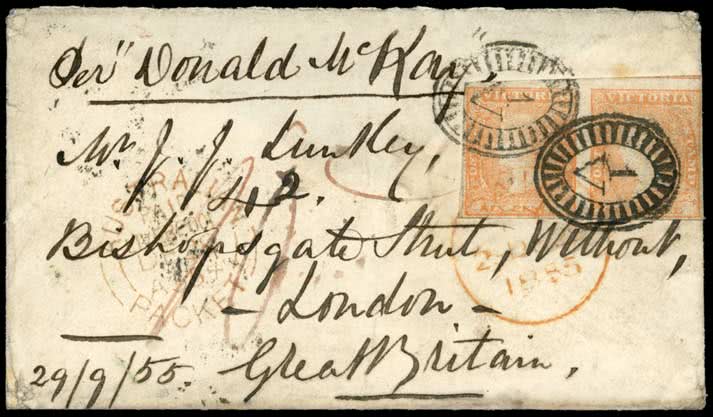 Per" Donald McKay,
VICTORIA VICTORIA
1 V
1 V
Mr J. J.
42.
Bishopsgate Street, Without,
PACKET
1855
- London -
29/9/55. Great Britain.